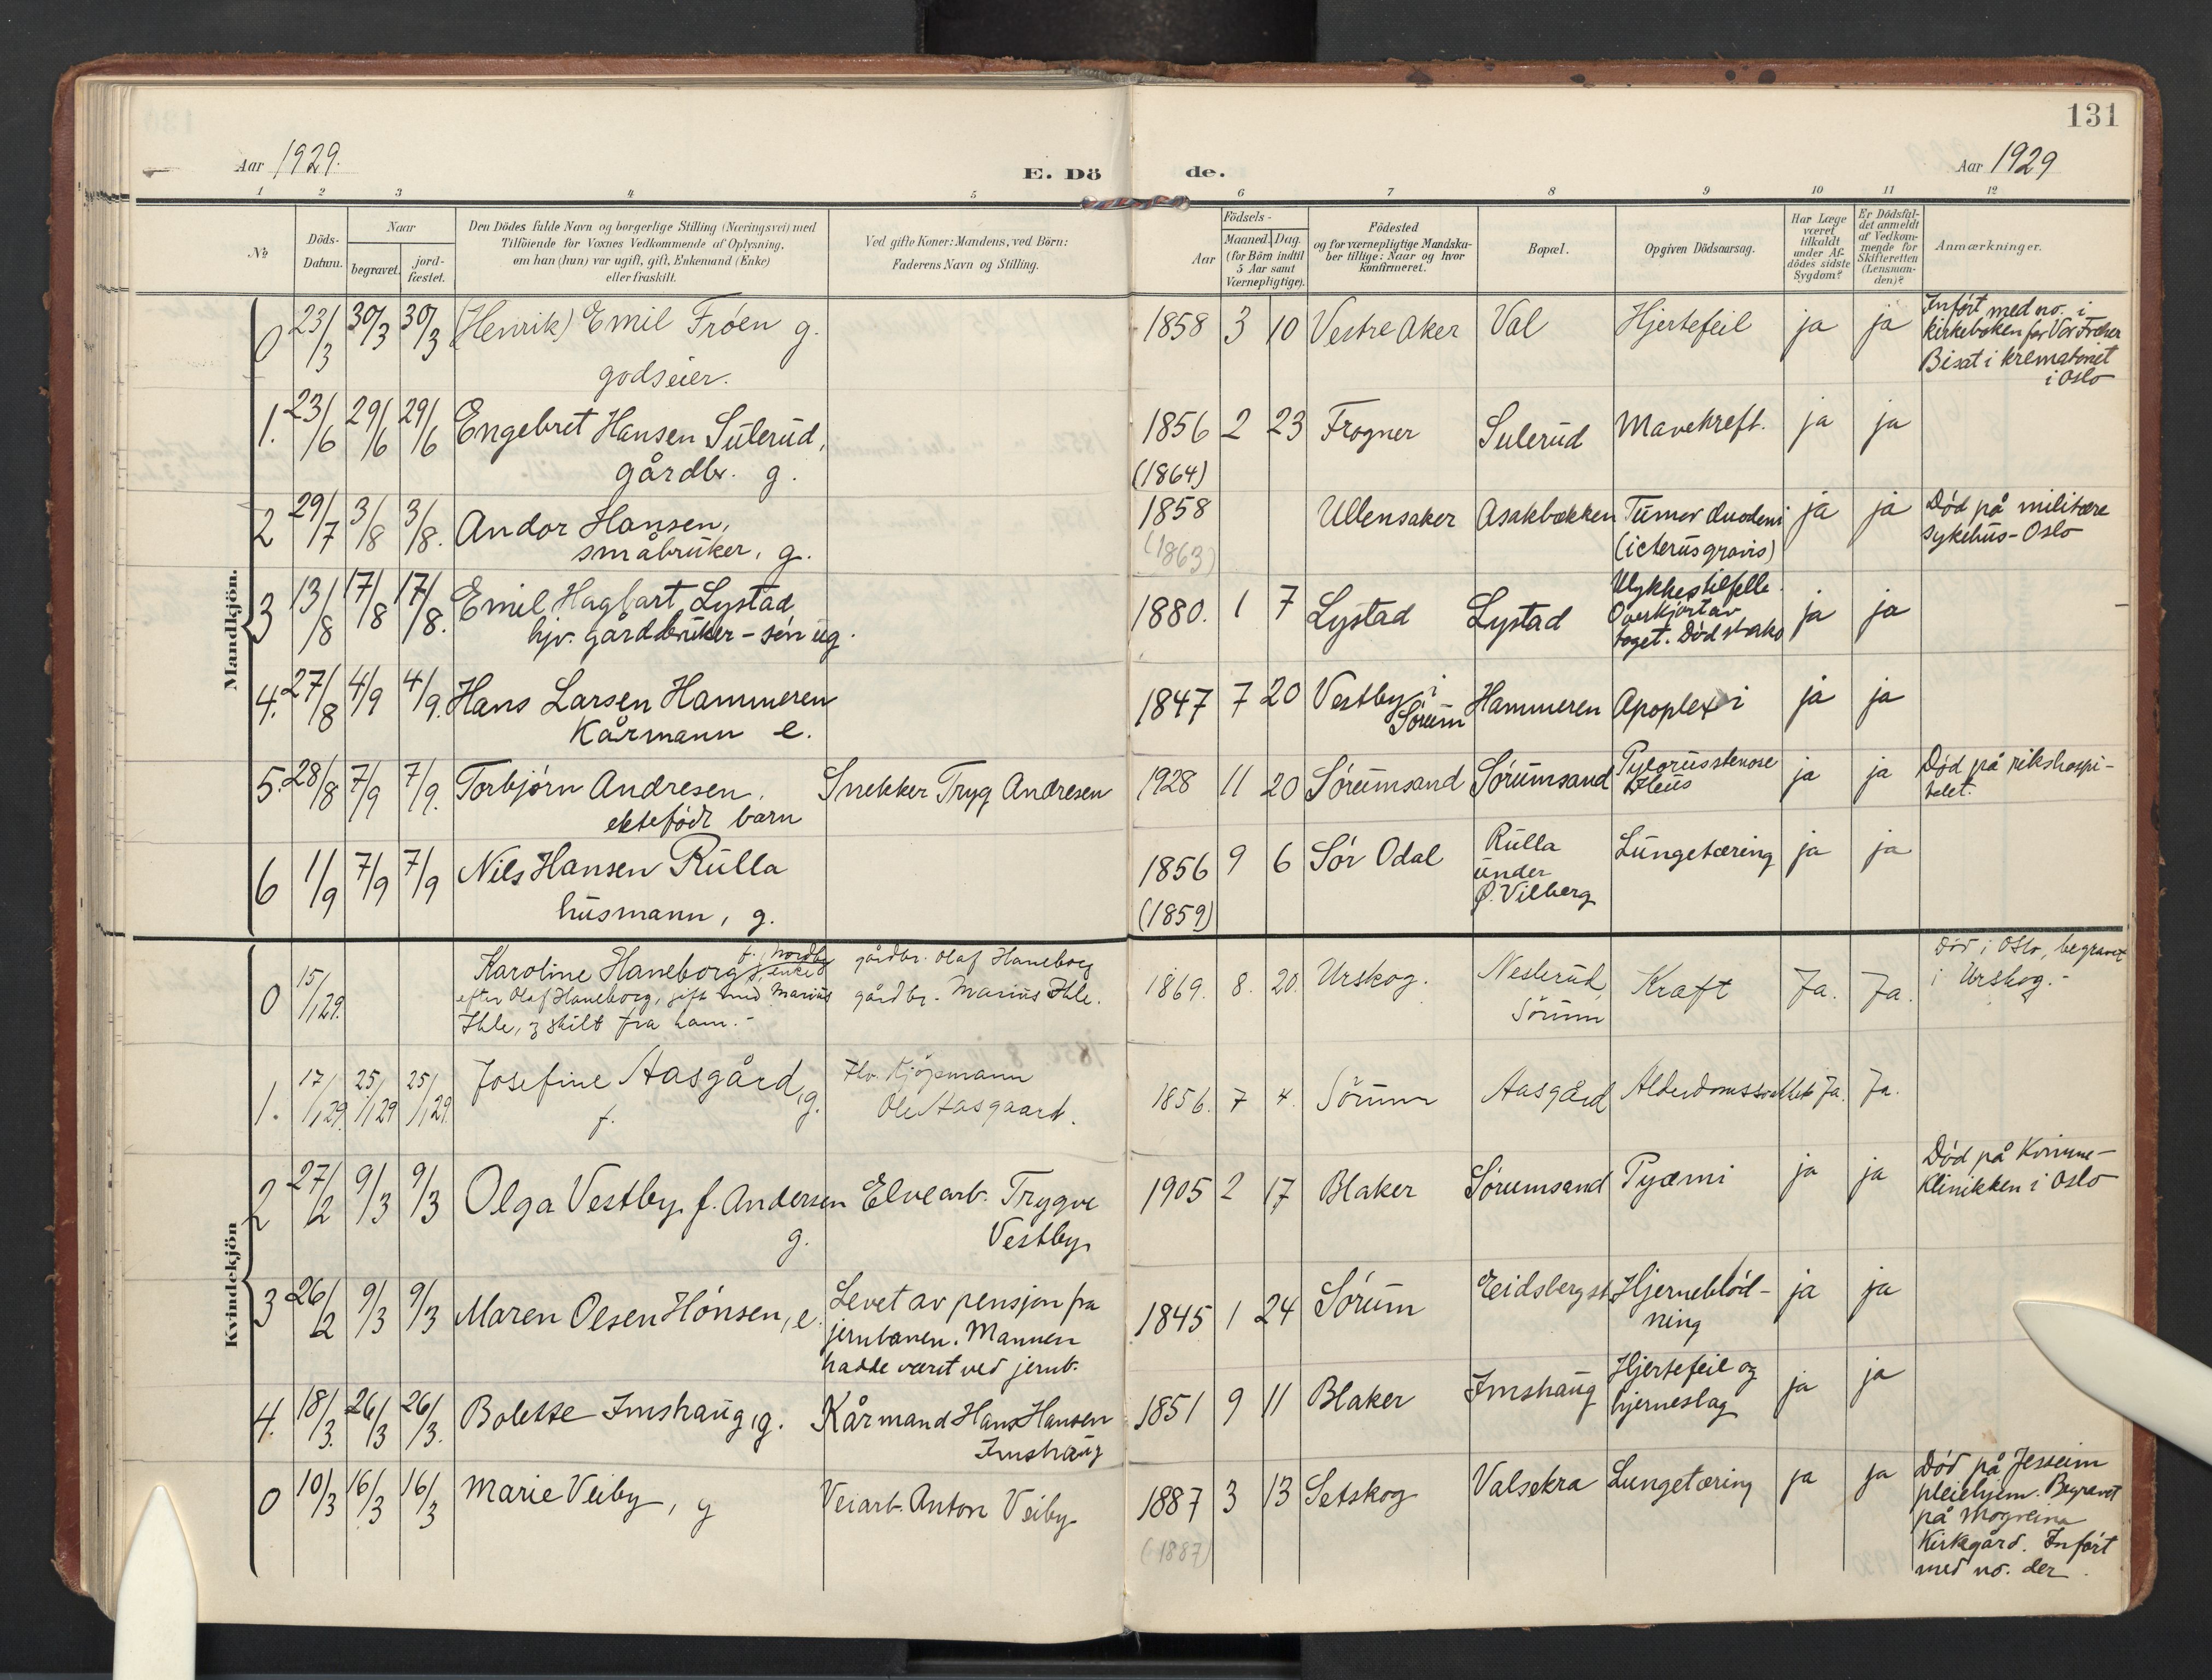 131
Aar 1929.
E. Dö
de.
Aar 1929
1 2 3 4 5 6 7 8 9 10 11 12
No
Döds-
Datum.
Naar
begravet.
jord-
fæstet.
Den Dödes fulde Navn og borgerlige Stilling (Næringsvei) med
Tilföiende for Voxnes Vedkommende af Oplysning,
om han (hun) var ugift, gift, Enkemand (Enke)
eller fraskilt.
Ved gifte Koner: Mandens, ved Börn:
Faderens Navn og Stilling.
Födsels-
Aar
Maaned. Dag.
(for Börn indtil
5 Aar samt
Værnepligtige).
Födested
og for værnepligtige Mandska-
ber tillige: Naar og hvor
konfirmeret.
Bopæl.
Opgiven Dödsaarsag.
Har Læge
været
tilkaldt
under Af-
dödes sidste
Sygdom?
Er Dödsfal-
det anmeldt
af Vedkom-
mende for
Skifteretten
(Lensman-
den)?
Anmærkninger.
Mandkjön.
0 23/3 30/3 30/3 (Henrik) Emil Frøen g.
godseier.
1858 3 10 Vestre Aker Val Hjertefeil ja ja
Inført med no. i
kirkeboken for Vor Frelser
Bisat i krematoriet
i Oslo
1. 23/6 29/6 29/6 Engebret Hansen Sulerud,
gårdbr. g.
1856 2 23 Frogner Sulerud Mavekreft. ja ja
(1864)
2 29/7 3/8 3/8. Andor Hansen,
småbruker, g.
1858 Ullensaker Asakbekken Tumor duodeni ja ja
(1863) (icterus gravis)
Død på militære
sykehus - Oslo
3 13/8 17/8 17/8. Emil Hagbart Lystad
hjv. gårdbruker - søn ug.
1880. 1 7 Lystad Lystad Ulykkestilfelle.
Overkjørt av
toget. Død straks ja ja
4. 27/8 4/9 4/9. Hans Larsen Hammeren
Kårmann e.
1847 7 20 Vestby i
Sørum Hammeren Apoplexi ja ja
5. 28/8 7/9 7/9. Torbjørn Andresen,
ektefødt barn
Snekker Tryg Andresen
1928 11 20 Sørumsand Sørumsand Pylorusstenose
Ileus ja ja
Død på rikshospi-
talet.
6 1/9 7/9 7/9 Nils Hansen Rulla
husmann, g.
1856 9 6 Sør Odal Rulla
under
Ø. Vilberg Lungetæring ja ja
(1859)
Kvindekjön
0 15/1 29. Karoline Haneborg f. Nordby, enke
efter Olaf Haneborg, gift med Marius
Ihle, & skilt fra ham.-
gårdbr. Olaf Haneborg
gårdbr. Marius Ihle.
1869. 8. 20. Urskog. Neslerud,
Sörum Kræft Ja. Ja.
Död i Oslo, begravet
i Urskog.-
1. 17/1 29. 25/1 29 25/1 29. Josefine Aasgård, g.
f.
Fhv. Kjöpmann
Ole Aasgaard.
1856. 7 4. Sörum Aasgård Alderdomssvakhet Ja. Ja.
2 27/2 9/3 9/3 Olga Vestby, f. Andersen
g.
Elvearb. Trygve
Vestby
1905 2 17 Blaker Sørumsand Pyæmi ja ja
Død på Kvinne-
klinikken i Oslo
3 26/2 9/3 9/3 Maren Olsen Hønsen, e.
Levet av pensjon fra
jernbanen. Mannen
hadde været ved jernb.
1845 1 24 Sørum Eidsbergst. Hjerneblød-
ning ja ja
4. 18/3. 26/3 26/3. Bolette Imshaug, g.
Kårmand Hans Hansen
Imshaug
1851 9 11 Blaker Imshaug Hjertefeil og
hjerneslag ja ja
0 10/3 16/3 16/3 Marie Veiby, g
Veiarb. Anton Veiby
1887 3 13 Setskog Valsekra Lungetæring ja ja
(1887)
Død på Jessheim
pleiehjem. Begravet
på Mogreina
Kirkegård. Inført
med no. der.